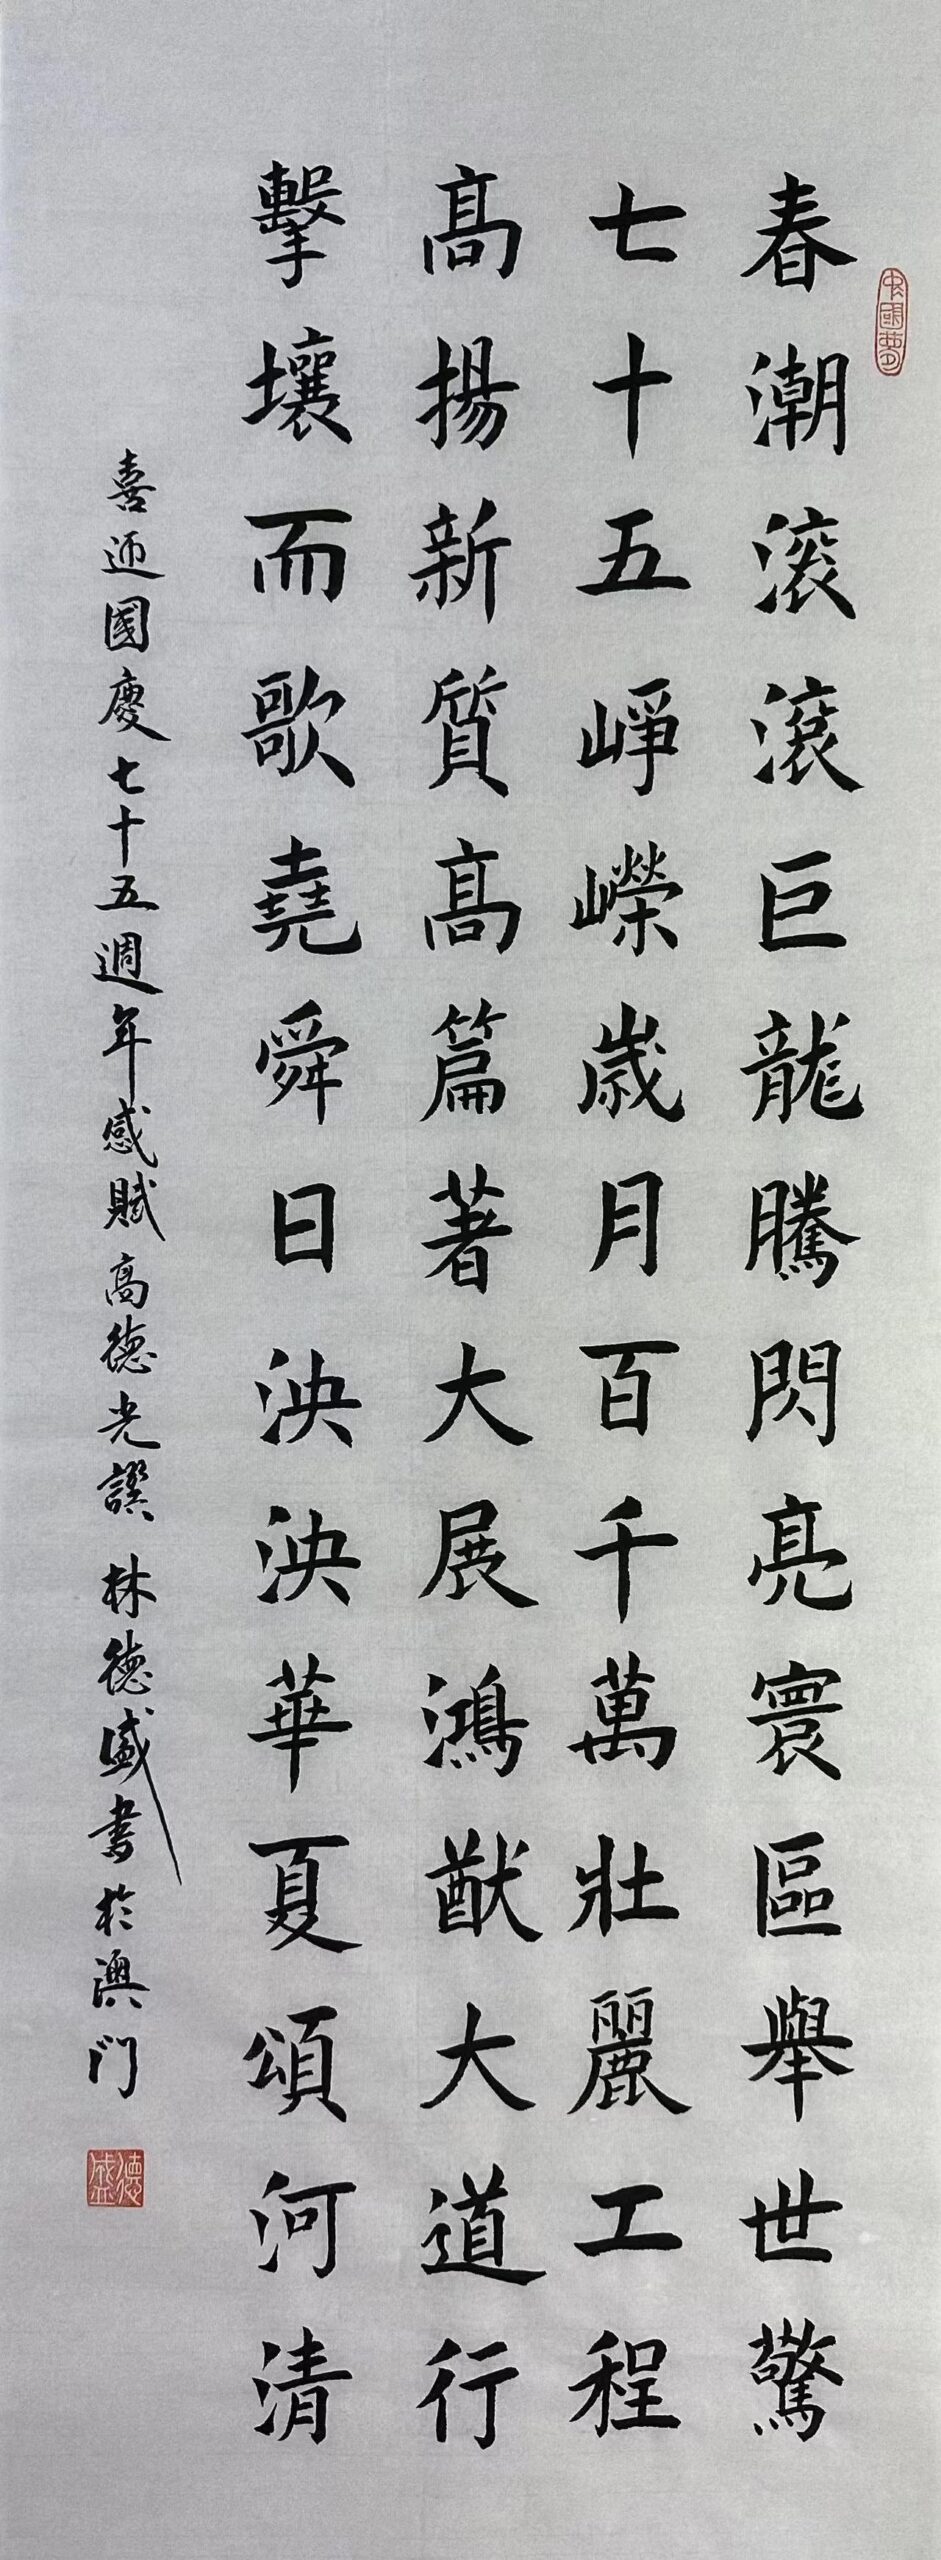 中國夢
春潮滚滾巨龍騰閃亮寰區舉世驚
七十五崢嶸歲月百千萬壯麗工程
髙揚新質髙篇著大展鴻猷大道行
擊壤而歌堯舜日泱泱華夏頌河清
喜迎國慶七十五週年感賦高德光譔 林德盛書於澳门
德盛